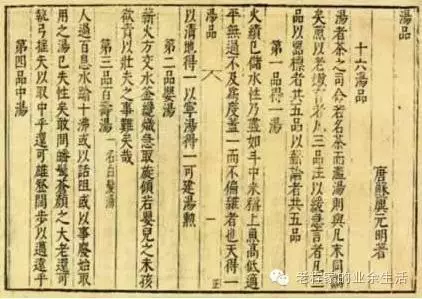 湯品
十六湯品
唐蘇廙元明著
湯者茶之司命若名茶而濫湯則與凡末同
矣煎以老嫩言者凡三品注以緩急言者凡
品以器標者共五品以薪論者共五品
第一品得一湯
火績已儲水性乃盡如斗中米稱上魚高低適
平無過不及為度蓋一而不偏雜者也天得一
湯品
一
以清地得一以寧湯得一可建湯勳
第二品嬰湯
薪火方交水釜纔熾急取旋傾若嬰兒之未孩
欲責以壯夫之事難矣哉
第三品百壽湯 一名白髮湯
人過百息水踰十沸或以話阻或以事廢始取
用之湯已失性矣敢問皤鬢蒼顏之大老還可
執弓挾矢以取中乎還可雄登闊步以邁遠乎
第四品中湯
老茬家的业余生活